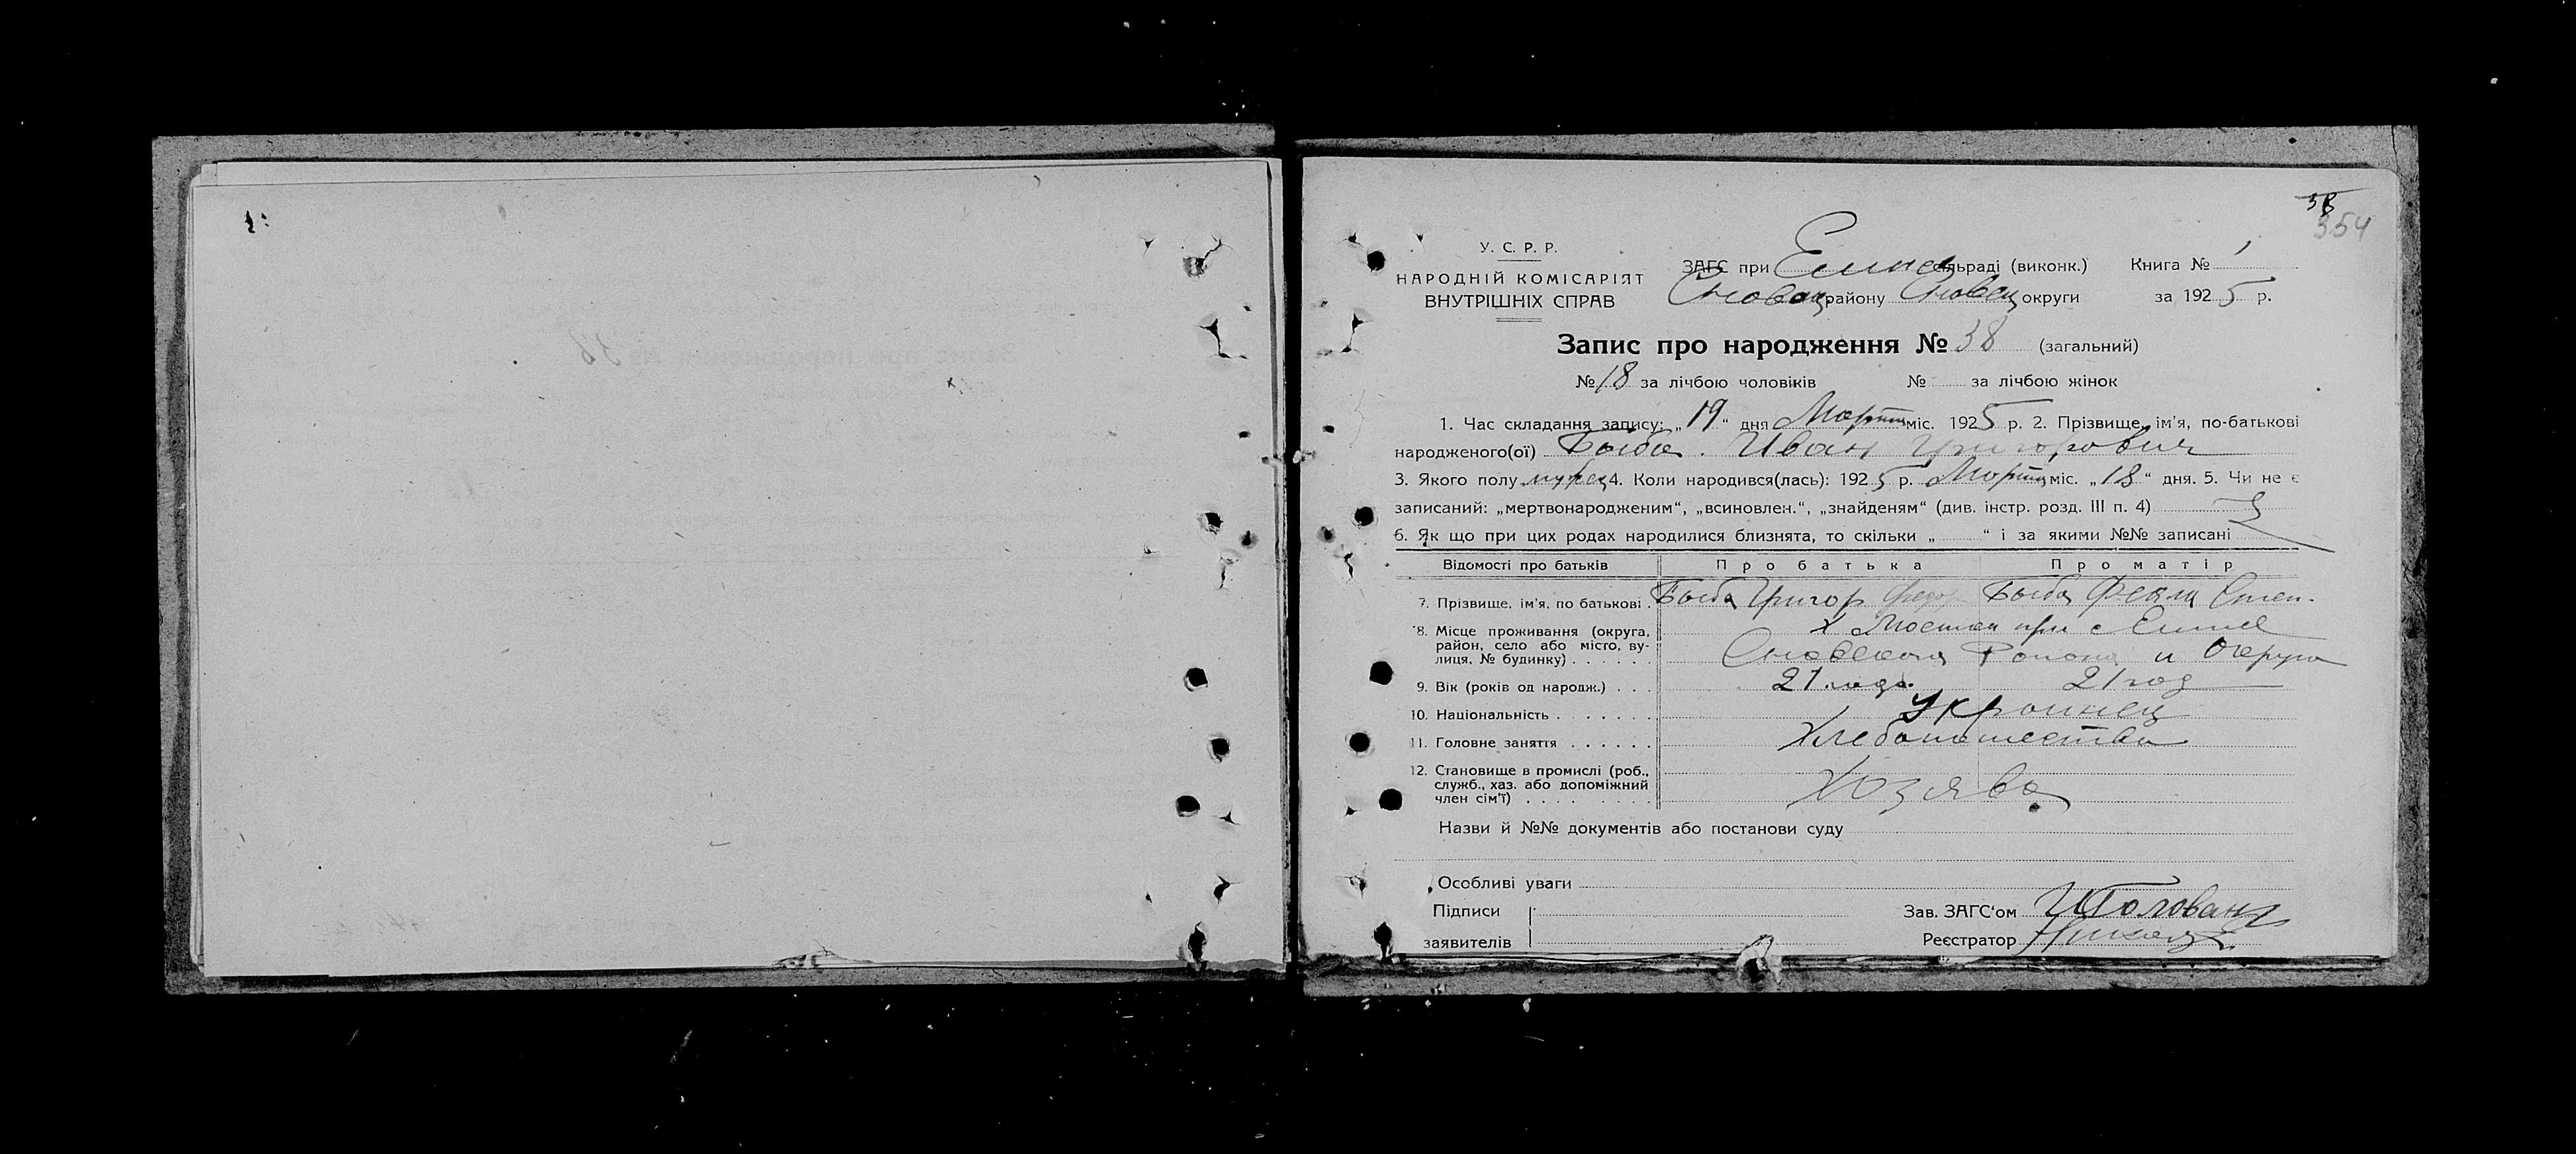 38
354
У. С. Р. Р.
НАРОДНІЙ КОМІСАРІЯТ
ВНУТРІШНІХ СПРАВ
ЗАГС при Елин сільраді (виконк.) Книга № 1
Сновск району Сновск округи за 1925 р.
Запис про народження № 38 (загальний)
№ 18 за лічбою чоловіків № за лічбою жінок
1. Час складання запису: „19“ дня Марта міс. 1925 р. 2. Прізвище, ім'я, по-батькові
народженого(ої) Быба Иван Григорович
3. Якого полу 4. Коли народився(лась): 1925 р. Марта міс. „18“ дня. 5. Чи не є
записаний: „мертвонародженим“, „всиновлен.“, „знайденям“ (див. інстр. розд. III п. 4)
6. Як що при цих родах народилися близнята, то скільки „ “ і за якими №№ записані
Відомості про батьків Про батька Про матір
7. Прізвище, ім'я, по батькові . Быба Григор Федор Быба Фекла Степ.
8. Місце проживання (округа, х при с Елине
район, село або місто, ву-
лиця, № будинку) . . . . . . Сновского Района и Округа
9. Вік (років од народж.) . . . 21 года. 21 год
10. Національність . . . . . . . Украинец
11. Головне заняття . . . . . . Хлебопашество
12. Становище в промислі (роб.,
служб., хаз. або допоміжний
член сім'ї) . . . . . . . . . Хозяева
Назви й №№ документів або постанови суду
Особливі уваги
Підписи Зав. ЗАГС'ом Голован
заявителів Реєстратор